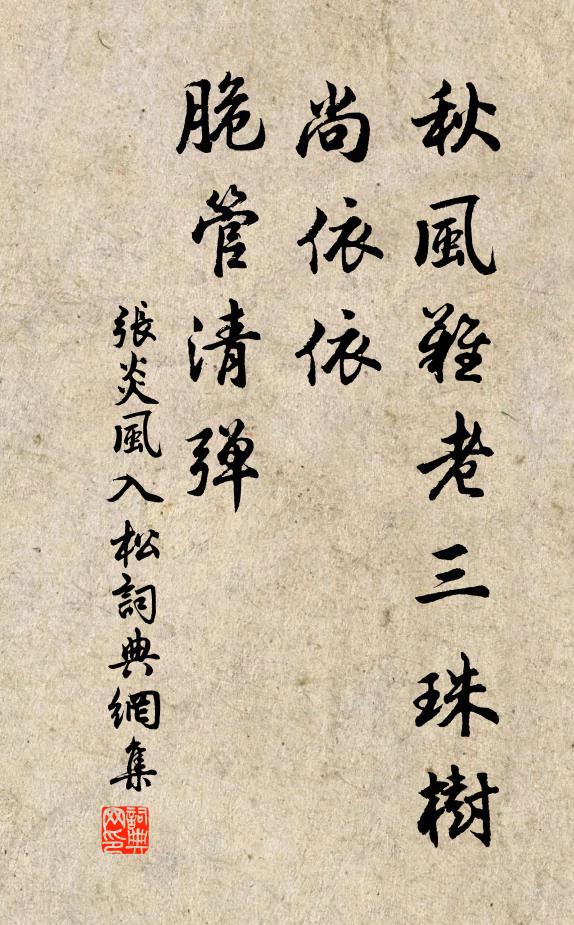 秋風難老三珠樹
尚依依
脆管清彈
張炎風入松詞典網集
詞典网印